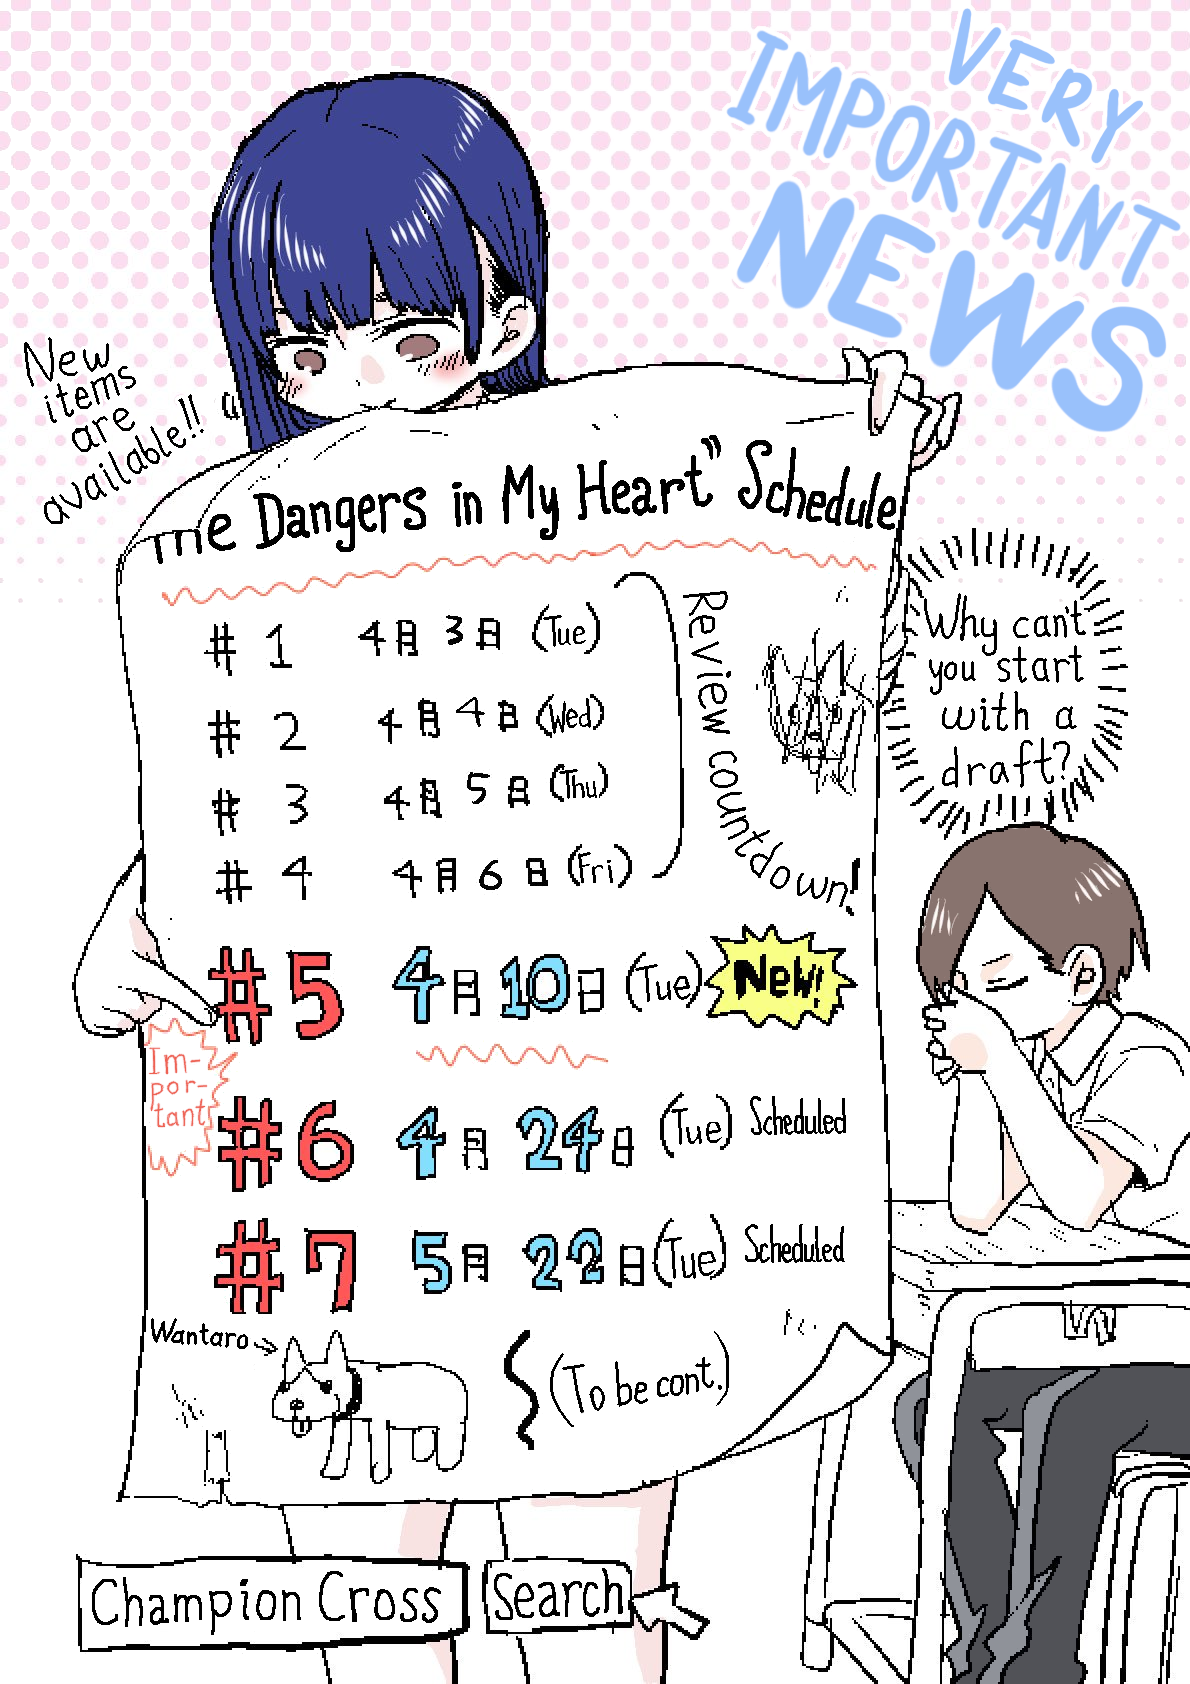 VERY
IMPORTANT
NEWS
New
items
are
available!!
The Dangers in My Heart” Schedule
# 1 4月3日 (Tue)
# 2 4月4日 (Wed)
# 3 4月5日 (Thu)
# 4 4月6日 (Fri)
Review countdown!
Why can't
you start
with a
draft?
#5 4月10日 (Tue) New!
Im-
por-
tant
#6 4月24日 (Tue) Scheduled
#7 5月22日 (Tue) Scheduled
Wantaro
(To be cont.)
Champion Cross Search